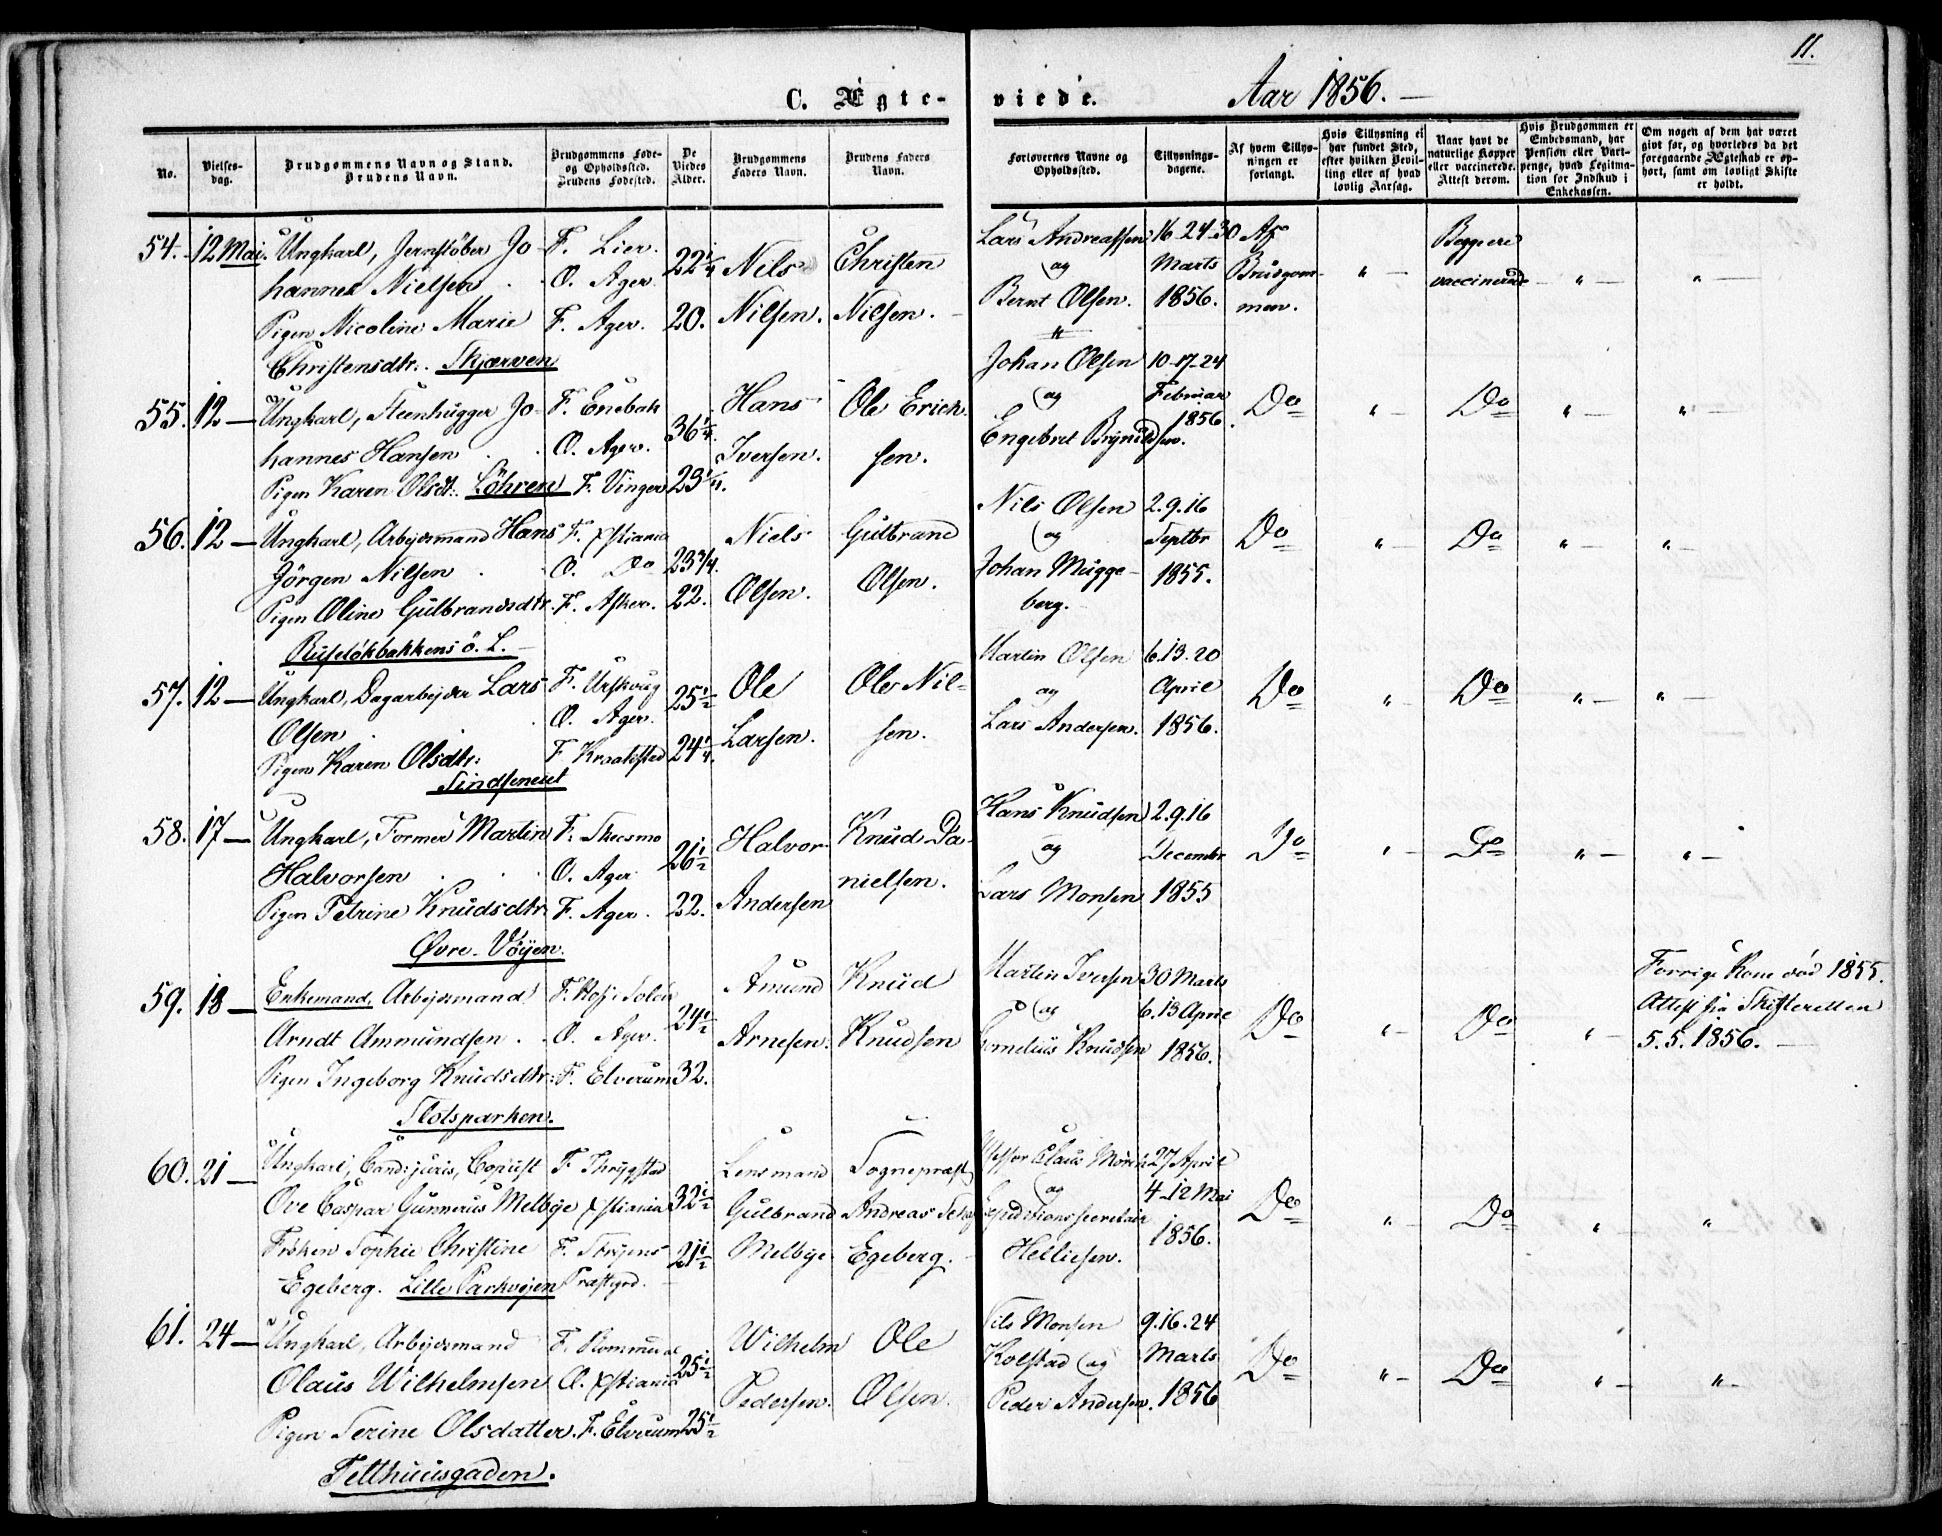 11.
C. Ægte-viede. Aar 1856.
No.
Vielses-dag.
Brudgommens Navn og Stand. Brudens Navn.
Brudgommens Føde- og Opholdssted. Brudens Fødested.
De Viedes Alder.
Brudgommens Faders Navn.
Brudens Faders Navn.
Forlovernes Navne og Opholdssted.
Tillysnings-dagene.
Af hvem Tillysningen er forlangt.
Hvis Tillysning ei har fundet Sted, efter hvilken Bevilling eller af hvad lovlig Aarsag.
Naar havt de naturlige Kopper eller vaccinerede. Attest derom.
Hvis Brudgommen er Embedsmand, har Pension eller Vartpenge, hvad Legitimation for Indskud i Enkekassen.
Om nogen af dem har været gift før, og hvorledes da det foregaaende Ægteskab er ophørt, samt om lovligt Skifte er holdt.
54. 12 Mai. Ungkarl, Jernstøber Jo- F. Lier. 22 1/4 Nils Christen Lars Andreassen 16-24-30 Af Begge ere
hannes Nielsen O. Ager. og Marts Brudgom- " vaccinerede " "
Pigen Nicoline Marie F. Ager. 20. Nilsen. Nilsen. Bernt Olsen. 1856. men.
Christensdtr. Skjærven
55. 12 Ungkarl, Steenhugger Jo- F. Enebak 36 1/4. Hans Ole Erich- Johan Olsen 10-17-24 Do " Do " "
hannes Hansen O. Ager. Iversen. sen. og Februar
Pigen Karen Olsdt. Löhren F. Vinger 23 Engebret Brynildsen. 1856.
56. 12 Ungkarl, Arbejdsmand Hans F. Xstiania Niels Gulbrand Nils Olsen 2.9.16 Do " Do " "
Jörgen Nilsen O. Do 23 3/4. og Septbr
Pigen Oline Gulbrandsdtr. F. Asker. 22. Olsen. Olsen. Johan Mugge-berg. 1855.
Ruseløkbakken ö. L.
57. 12 Ungkarl, Dagarbejder Lars F. Urskoug 25 1/2 Ole Ole Nil- Martin Olsen 6.13.20 Do " Do " "
Olsen O. Ager. og April
Pigen Karen Olsdtr: F. Kraakstad 24 1/4. Larsen. sen. Lars Andersen. 1856.
58. 17 Ungkarl, Former Martin F. Skeesmo 26 1/2 Halvor Knud Da- Hans Knudsen 2.9.16 Do " Do " "
Halvorsen O. Ager. og Decembr
Pigen Petrine Knudsdtr. F. Ager. 22. Andersen nielsen. Lars Monsen 1855
Øvre-Vöyen.
59. 18 Enkemand, Arbejdsmand F. Hof i Solör 24 1/2 Amund Knud Martin Iversen 30 Marts Do " Do " Forrige Kone död 1855.
Arndt Ammundsen O. Ager. Arnesen. Knudsen og 6.13 April Attest fra Skifteretten
Pigen Ingeborg Knudsdtr: F. Elverum 32. Cornelius Knudsen 1856. 5.5.1856.
Slotsparken.
60. 21 Ungkarl, Cand: juris, Copiist F. Thrygstad 32 1/2 Lensmand Sognepræst Claus 27 April Do " Do " "
Ove Caspar Gunnerus Melbye Xstiania Gulbrand Andreas og 4-12 Mai
Fröken Sophie Christine F. 21 1/2 Melbye Egeberg. Expeditionssecretair 1856.
Egeberg. Lille Parkvejen Præstgrd. Helliesen.
61. 24 Ungkarl, Arbejdsmand F. 25 1/2 Wilhelm Ole Nils Monsen 9.16.24 Do " Do " "
Olaus Wilhelmsen O. Xstiania Kolstad og Marts
Pigen Serine Olsdatter. F. Elverum 25 1/2 Pedersen. Olsen. Peder Andersen. 1856
Telthuusgaden.